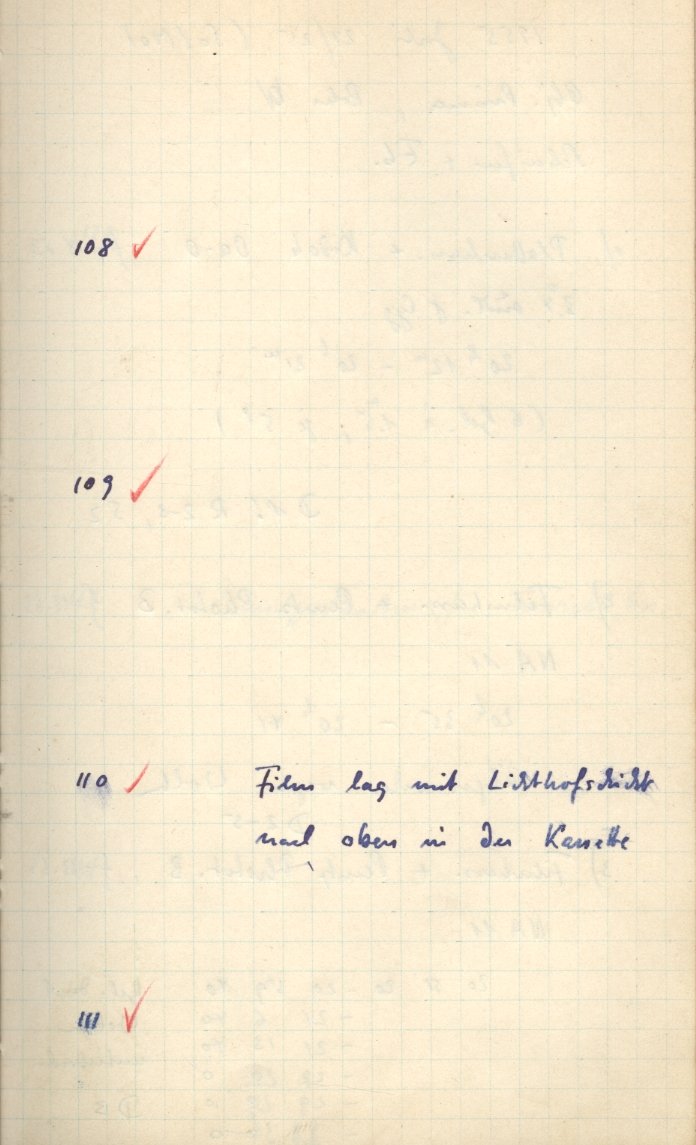 108 ✓
109 ✓
110 ✓ Film lag mit Lichthofschicht
nach oben in der Kassette
111 ✓